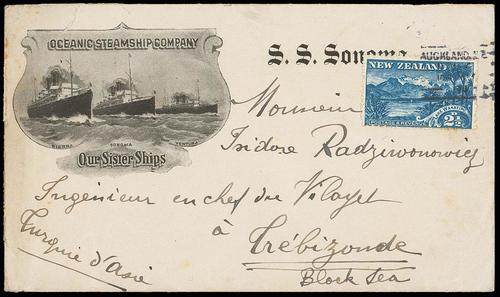 OCEANIC STEAMSHIP COMPANY
SIERRA SONOMA VENTURA
Our Sister Ships
S. S. Sonoma
AUCKLAND, N.Z.
NEW ZEALAND
POSTAGE & REVENUE
2½
Monsieur
Isidore Radziwonowicz
Ingénieur en chef du Vilayet
à
Trébizonde
Turquie d'Asie
Black Sea